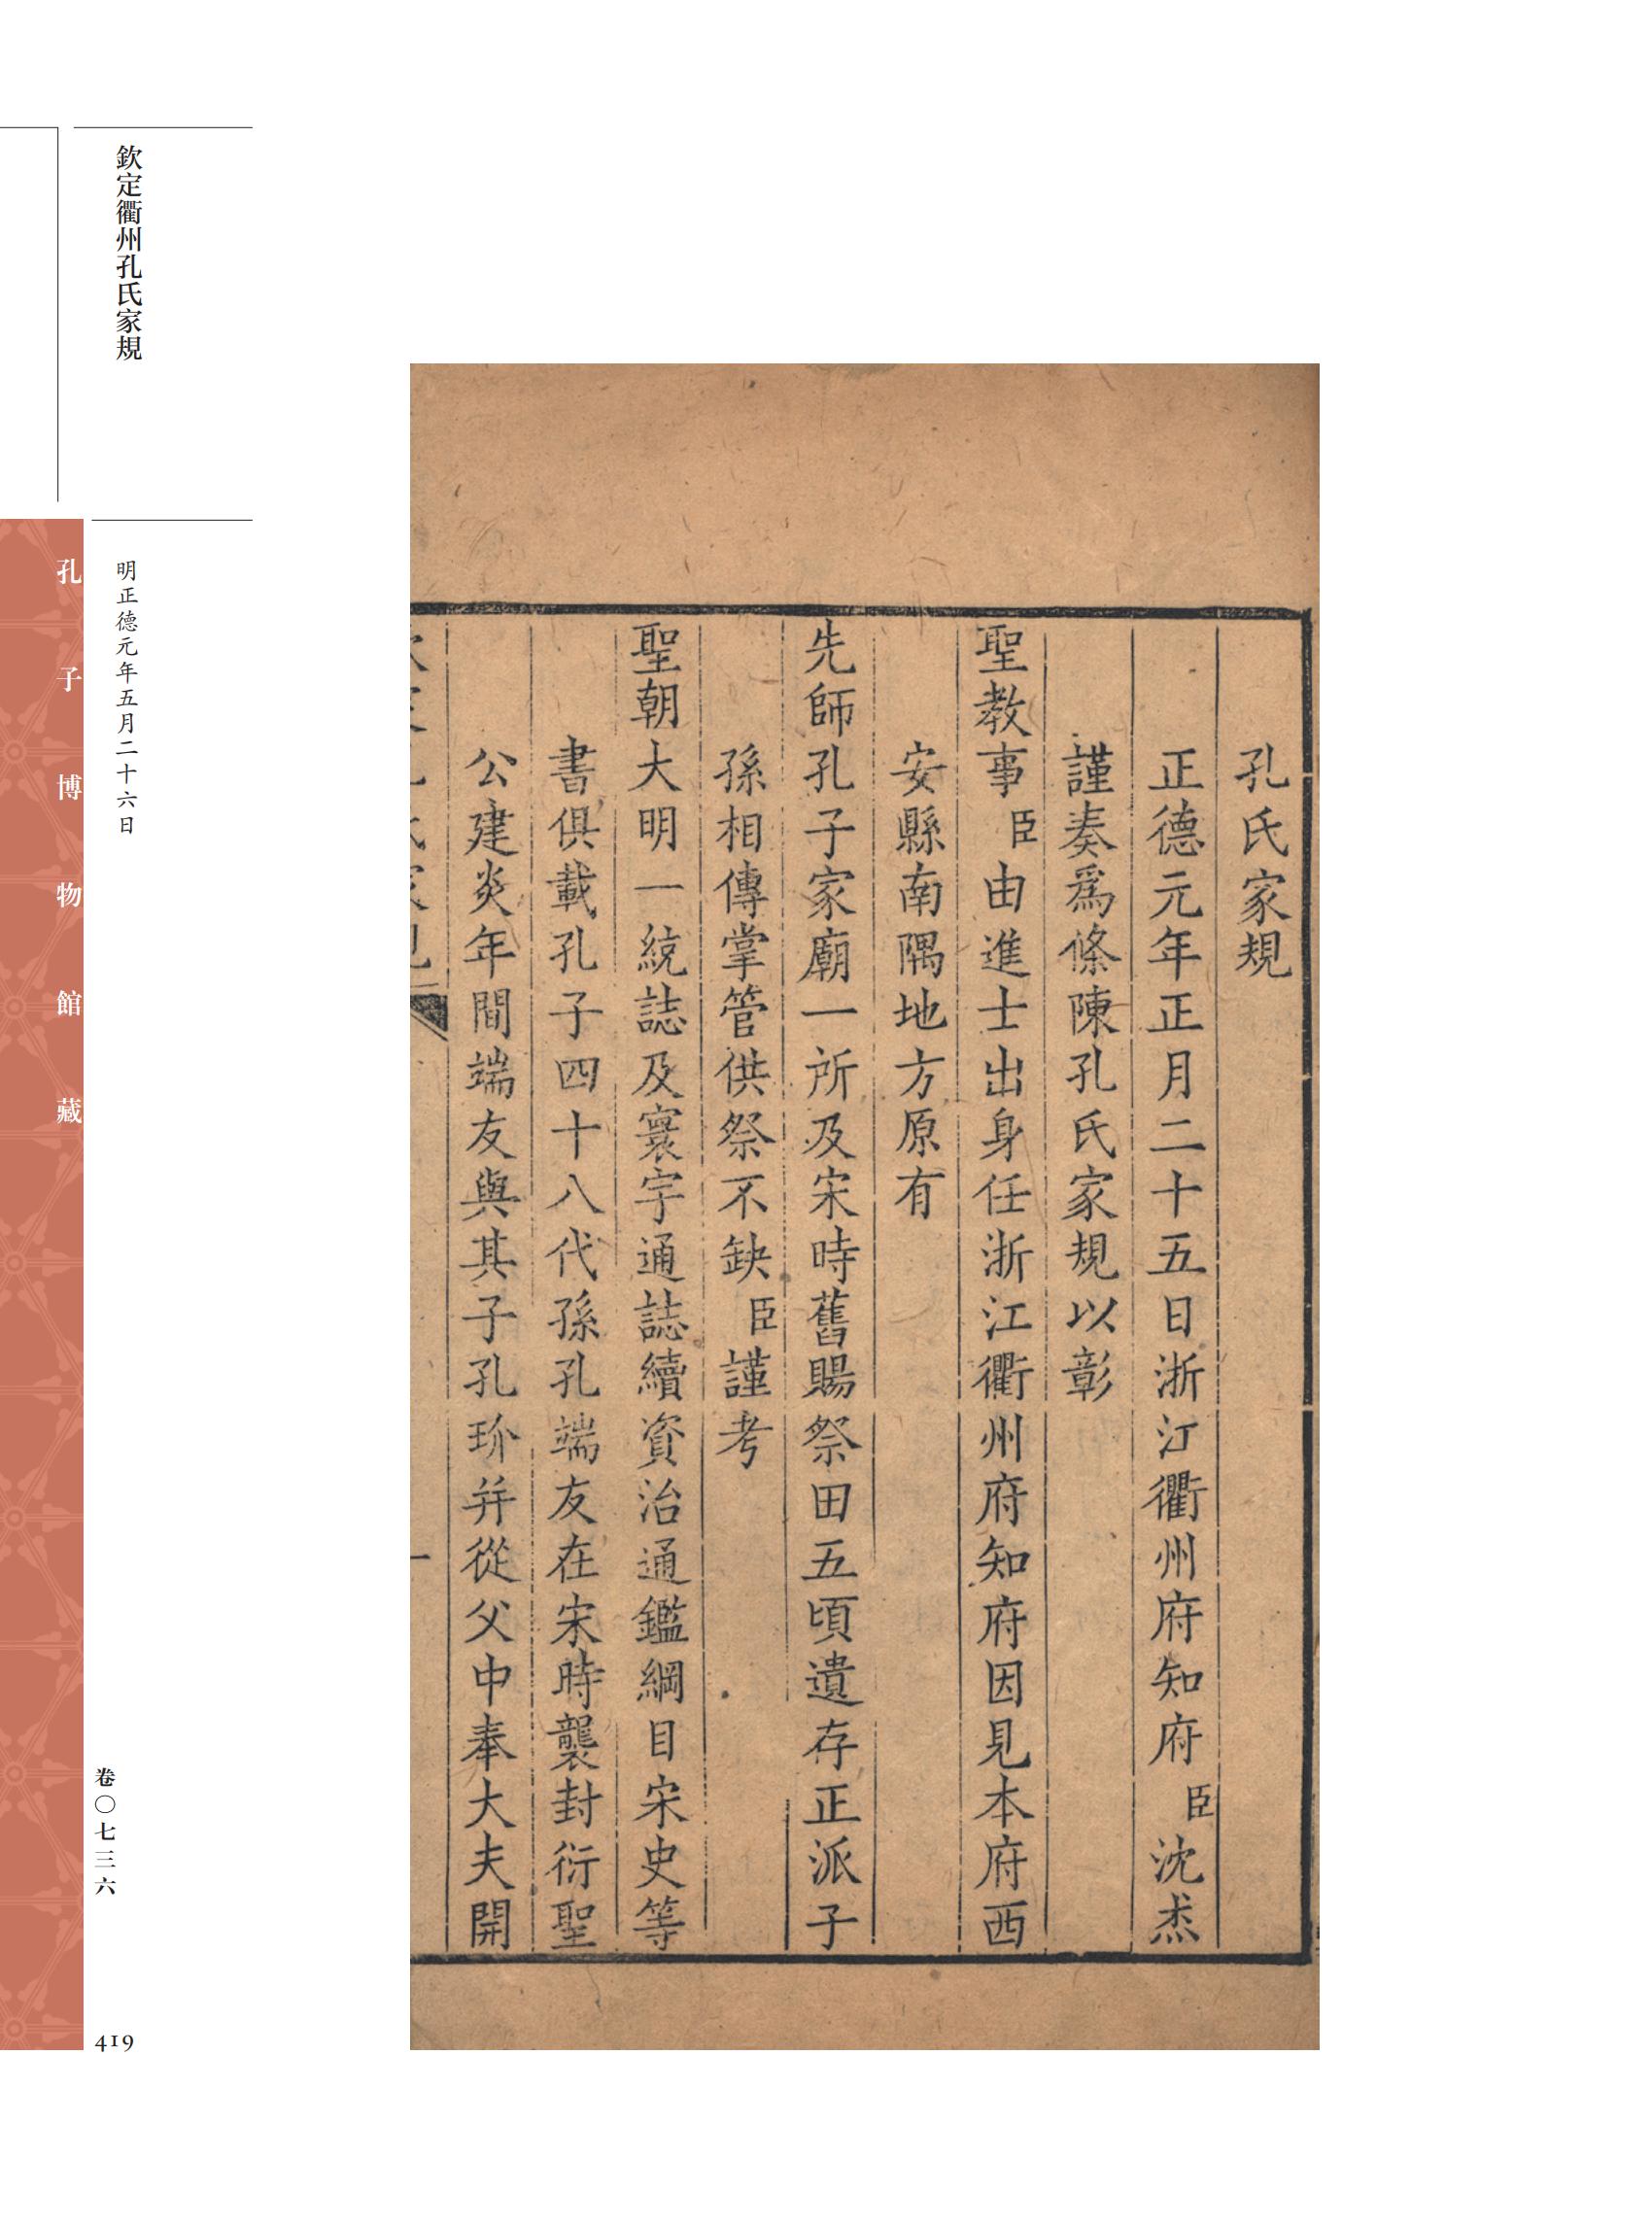 孔氏家規
正德元年正月二十五日浙江衢州府知府臣沈杰
謹奏爲條陳孔氏家規以彰
聖教事臣由進士出身任浙江衢州府知府因見本府西
安縣南隅地方原有
先師孔子家廟一所及宋時舊賜祭田五頃遺存正派子
孫相傳掌管供祭不缺臣謹考
聖朝大明一統誌及寰宇通誌續資治通鑑綱目宋史等
書俱載孔子四十八代孫孔端友在宋時襲封衍聖
公建炎年間端友與其子孔玠并從父中奉大夫開
一
欽定衢州孔氏家規
明正德元年五月二十六日
孔子博物館藏
卷〇七三六
419